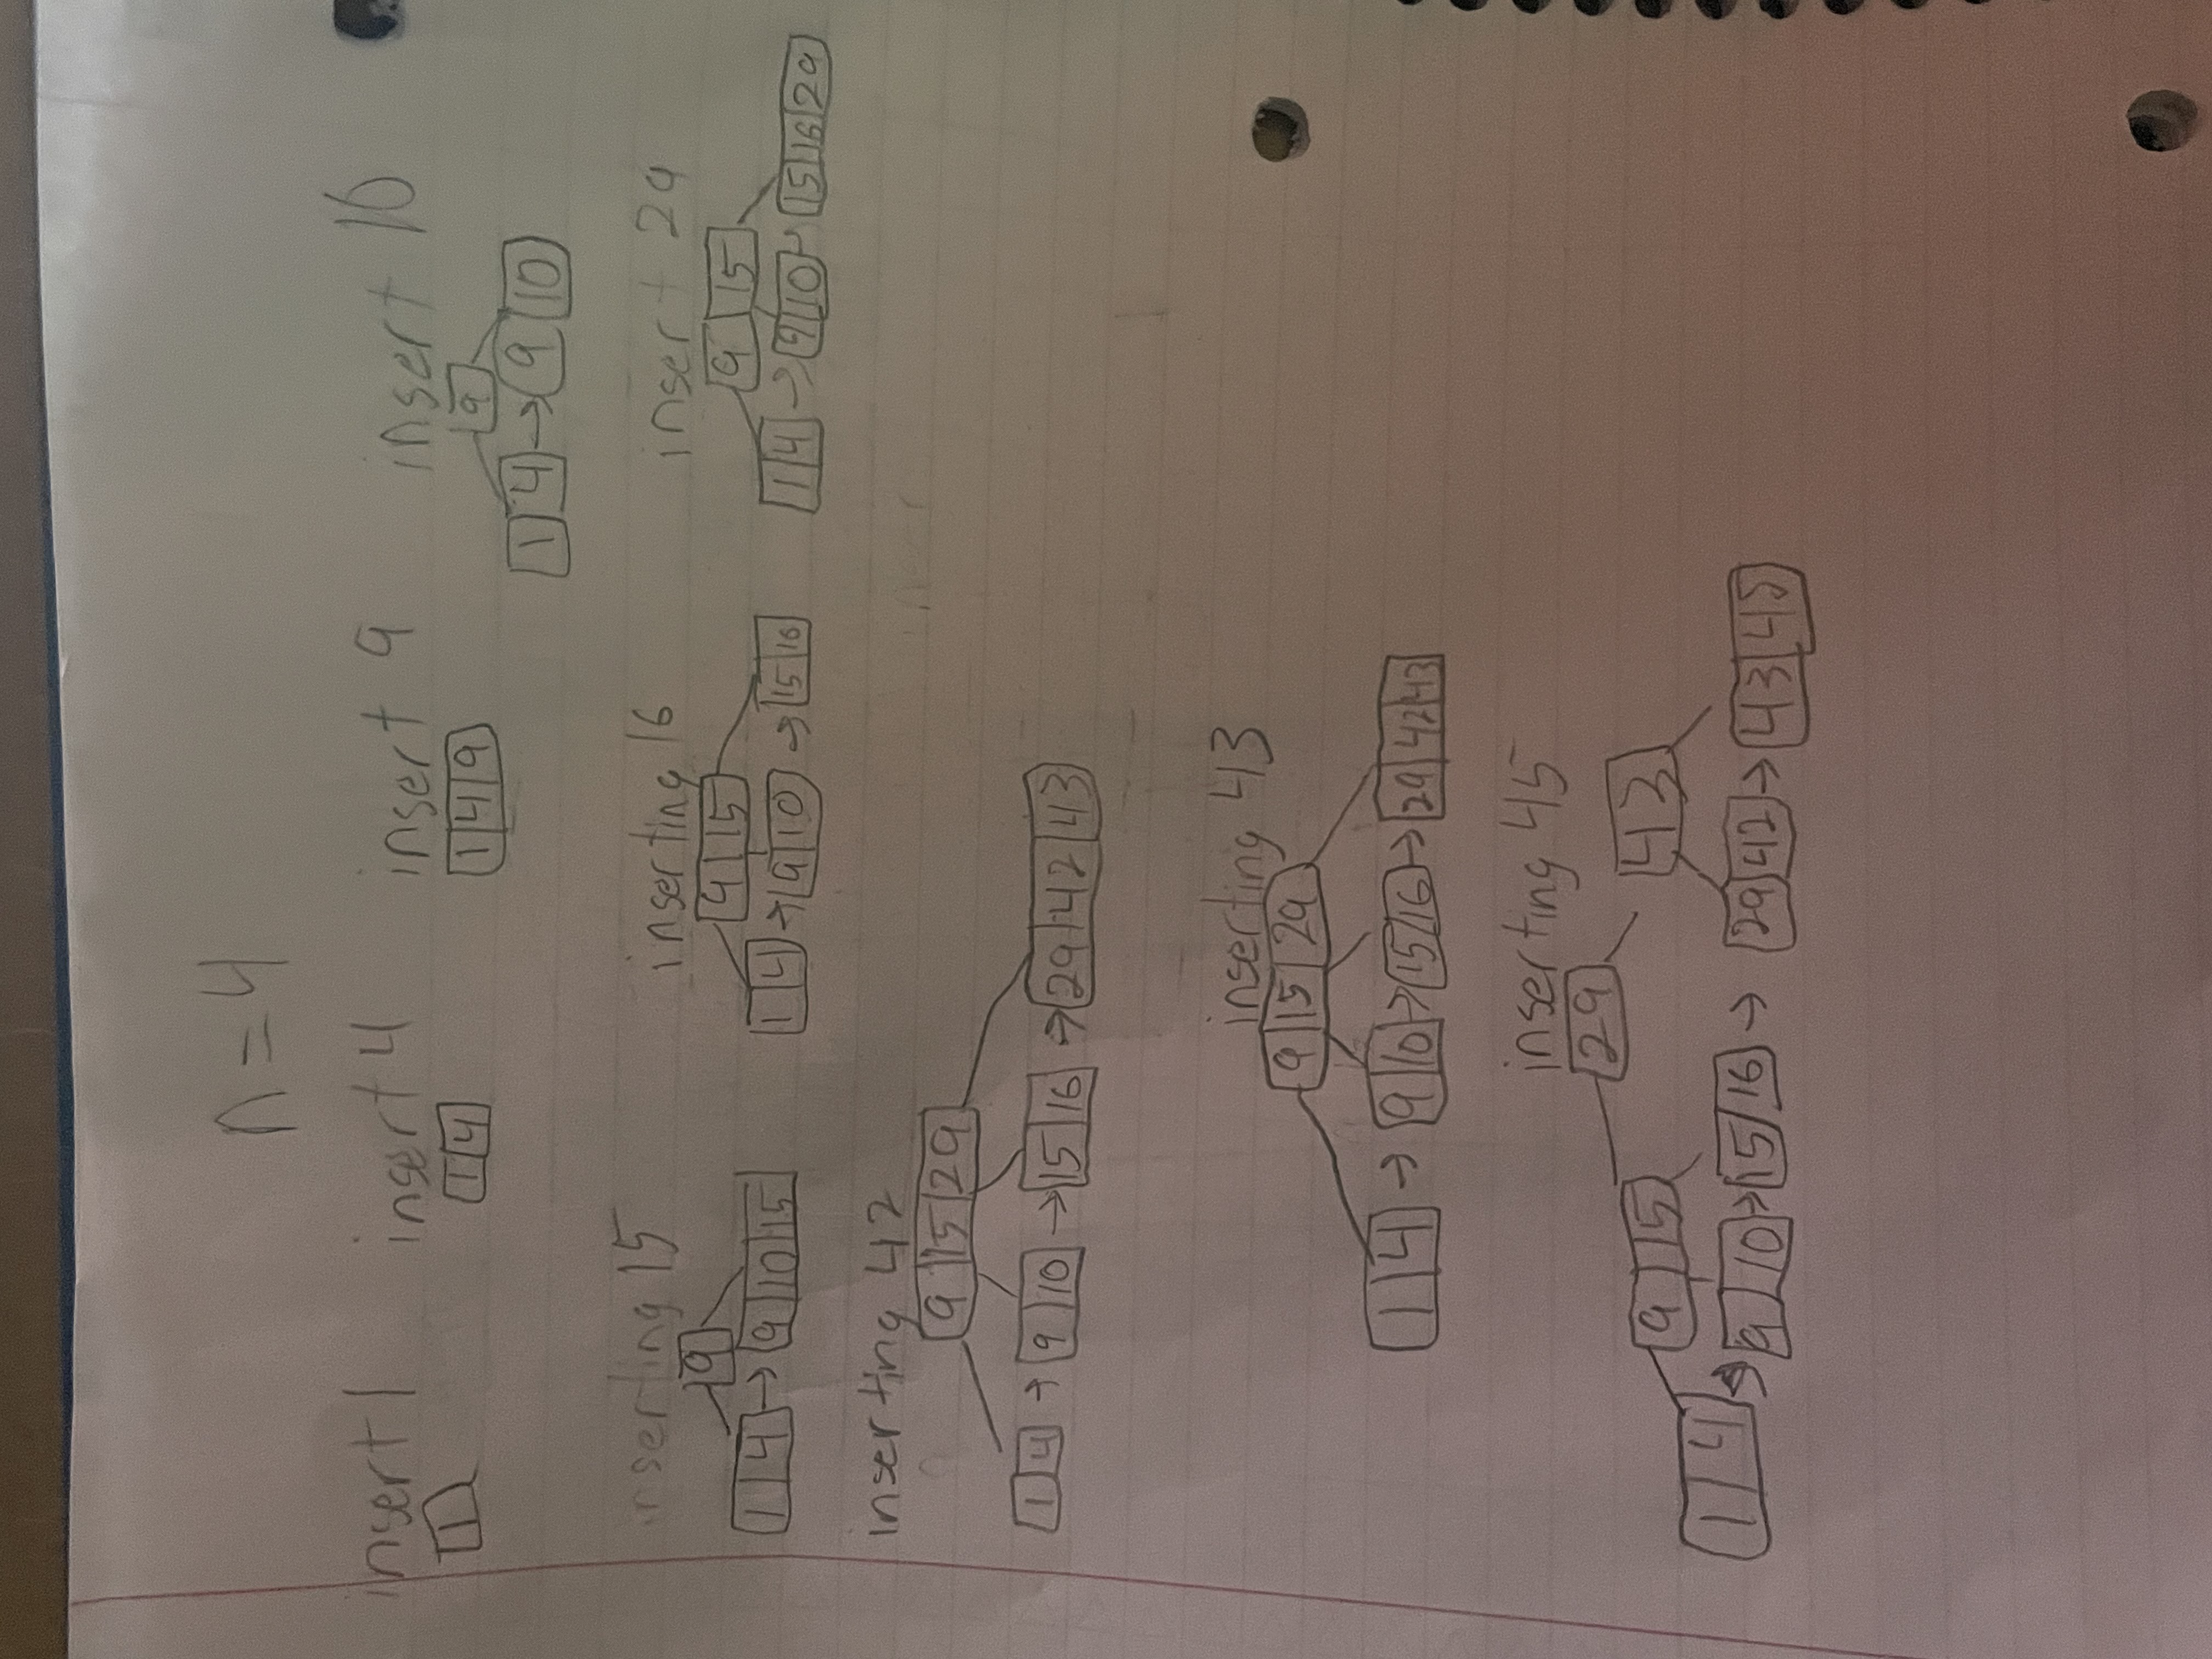 n = 4
insert 1 insert 4 insert 9 insert 10
1 1 4 1 4 9 9
1 4 → 9 10
inserting 15 inserting 16 insert 29
9 9 15 9 15
1 4 → 9 10 15 1 4 → 9 10 → 15 16 1 4 → 9 10 → 15 16 29
inserting 42
9 15 29
1 4 → 9 10 → 15 16 → 29 42 43
inserting 43
9 15 29
1 4 → 9 10 → 15 16 → 29 42 43
inserting 45
29
9 15 43
1 4 → 9 10 → 15 16 → 29 42 → 43 45